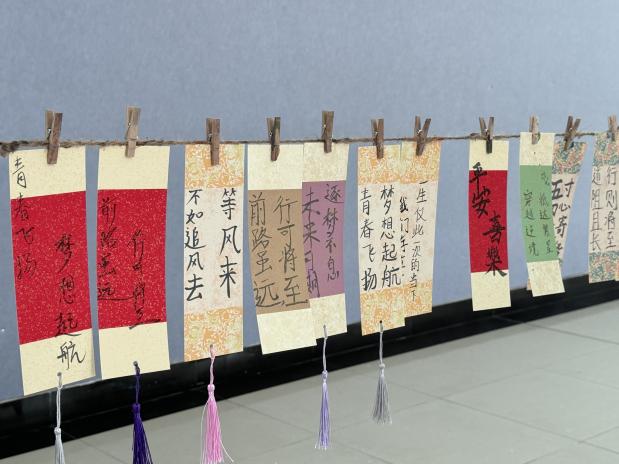 青春飞扬
梦想起航
前路虽远
行可将至
等风来
不如追风去
前路虽远
行可将至
逐梦不息
未来可期
青春飞扬
梦想起航
一生仅此一次的当下
平安
喜樂
穿越逆境
抵达繁星
道阻且长
行则将至